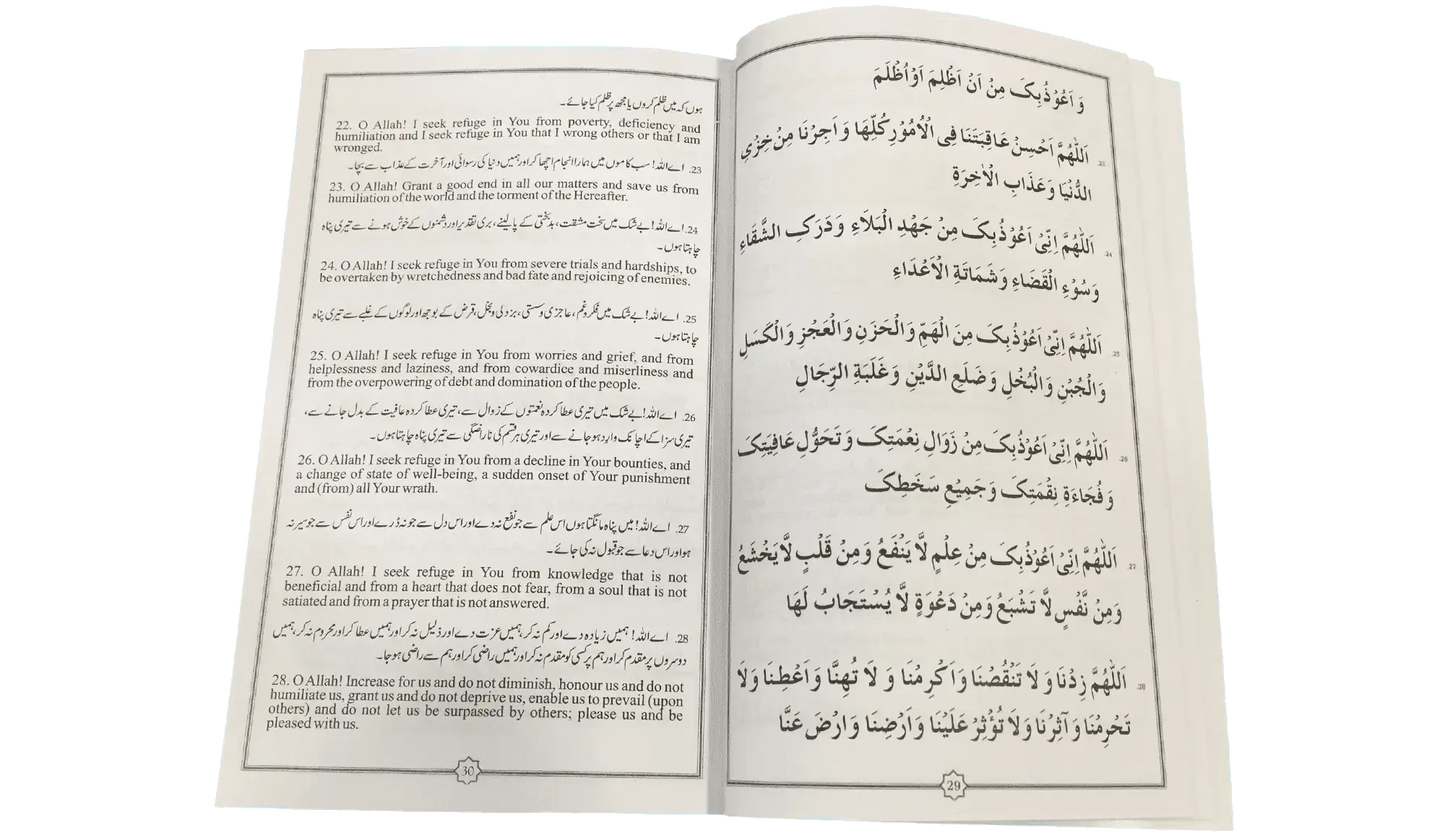 وَ اَعُوْذُبِکَ مِنْ اَنْ اَظْلِمَ اَوْ اُظْلَمَ
23. اَللّٰهُمَّ اَحْسِنْ عَاقِبَتَنَا فِی الْاُمُوْرِ کُلِّهَا وَ اَجِرْنَا مِنْ خِزْیِ
الدُّنْیَا وَ عَذَابِ الْاٰخِرَةِ
24. اَللّٰهُمَّ اِنِّیْ اَعُوْذُبِکَ مِنْ جَهْدِ الْبَلَاءِ وَ دَرَکِ الشَّقَاءِ
وَسُوْءِ الْقَضَاءِ وَ شَمَاتَةِ الْاَعْدَاءِ
25. اَللّٰهُمَّ اِنِّیْ اَعُوْذُبِکَ مِنَ الْهَمِّ وَالْحَزَنِ وَالْعَجْزِ وَالْکَسَلِ
وَالْجُبْنِ وَالْبُخْلِ وَ ضَلَعِ الدَّیْنِ وَ غَلَبَةِ الرِّجَالِ
26. اَللّٰهُمَّ اِنِّیْ اَعُوْذُبِکَ مِنْ زَوَالِ نِعْمَتِکَ وَ تَحَوُّلِ عَافِیَتِکَ
وَ فُجَاءَةِ نِقْمَتِکَ وَ جَمِیْعِ سَخَطِکَ
27. اَللّٰهُمَّ اِنِّیْ اَعُوْذُبِکَ مِنْ عِلْمٍ لَّا یَنْفَعُ وَمِنْ قَلْبٍ لَّا یَخْشَعُ
وَمِنْ نَّفْسٍ لَّا تَشْبَعُ وَمِنْ دَعْوَةٍ لَّا یُسْتَجَابُ لَهَا
28. اَللّٰهُمَّ زِدْنَا وَ لَا تَنْقُصْنَا وَ اَکْرِمْنَا وَ لَا تُهِنَّا وَ اَعْطِنَا وَلَا
تَحْرِمْنَا وَ آثِرْنَا وَ لَا تُؤْثِرْ عَلَیْنَا وَ اَرْضِنَا وَ ارْضَ عَنَّا
29
ہوں کہ میں ظلم کروں یا مجھ پر ظلم کیا جائے۔
22. O Allah! I seek refuge in You from poverty, deficiency and
humiliation and I seek refuge in You that I wrong others or that I am
wronged.
23. اے اللہ! سب کاموں میں ہمارا انجام اچھا کر اور ہمیں دنیا کی رسوائی اور آخرت کے عذاب سے بچا۔
23. O Allah! Grant a good end in all our matters and save us from
humiliation of the world and the torment of the Hereafter.
24. اے اللہ! بے شک میں سخت مشقت، بدبختی کے پا لینے، بری تقدیر اور دشمنوں کے خوش ہونے سے تیری پناہ
چاہتا ہوں۔
24. O Allah! I seek refuge in You from severe trials and hardships, to
be overtaken by wretchedness and bad fate and rejoicing of enemies.
25. اے اللہ! بے شک میں فکر و غم، عاجزی و سستی، بزدلی و بخل، قرض کے بوجھ اور لوگوں کے غلبے سے تیری پناہ
چاہتا ہوں۔
25. O Allah! I seek refuge in You from worries and grief, and from
helplessness and laziness, and from cowardice and miserliness and
from the overpowering of debt and domination of the people.
26. اے اللہ! بے شک میں تیری عطا کردہ نعمتوں کے زوال سے، تیری عطا کردہ عافیت کے بدل جانے سے،
تیری سزا کے اچانک وارد ہو جانے سے اور تیری ہر قسم کی ناراضگی سے تیری پناہ چاہتا ہوں۔
26. O Allah! I seek refuge in You from a decline in Your bounties, and
a change of state of well-being, a sudden onset of Your punishment
and (from) all Your Wrath.
27. اے اللہ! میں پناہ مانگتا ہوں اس علم سے جو نفع نہ دے اور اس دل سے جو نہ ڈرے اور اس نفس سے جو سیر نہ
ہو اور اس دعا سے جو قبول نہ کی جائے۔
27. O Allah! I seek refuge in You from knowledge that is not
beneficial and from a heart that does not fear, from a soul that is not
satiated and from a prayer that is not answered.
28. اے اللہ! ہمیں زیادہ دے اور کم نہ کر، ہمیں عزت دے اور ذلیل نہ کر اور ہمیں عطا کر اور محروم نہ کر، ہمیں
دوسروں پر مقدم کر اور ہم پر کسی کو مقدم نہ کر اور ہمیں راضی کر اور ہم سے راضی ہو جا۔
28. O Allah! Increase for us and do not diminish, honour us and do not
humiliate us, grant us and do not deprive us, enable us to prevail (upon
others) and do not let us be surpassed by others; please us and be
pleased with us.
30